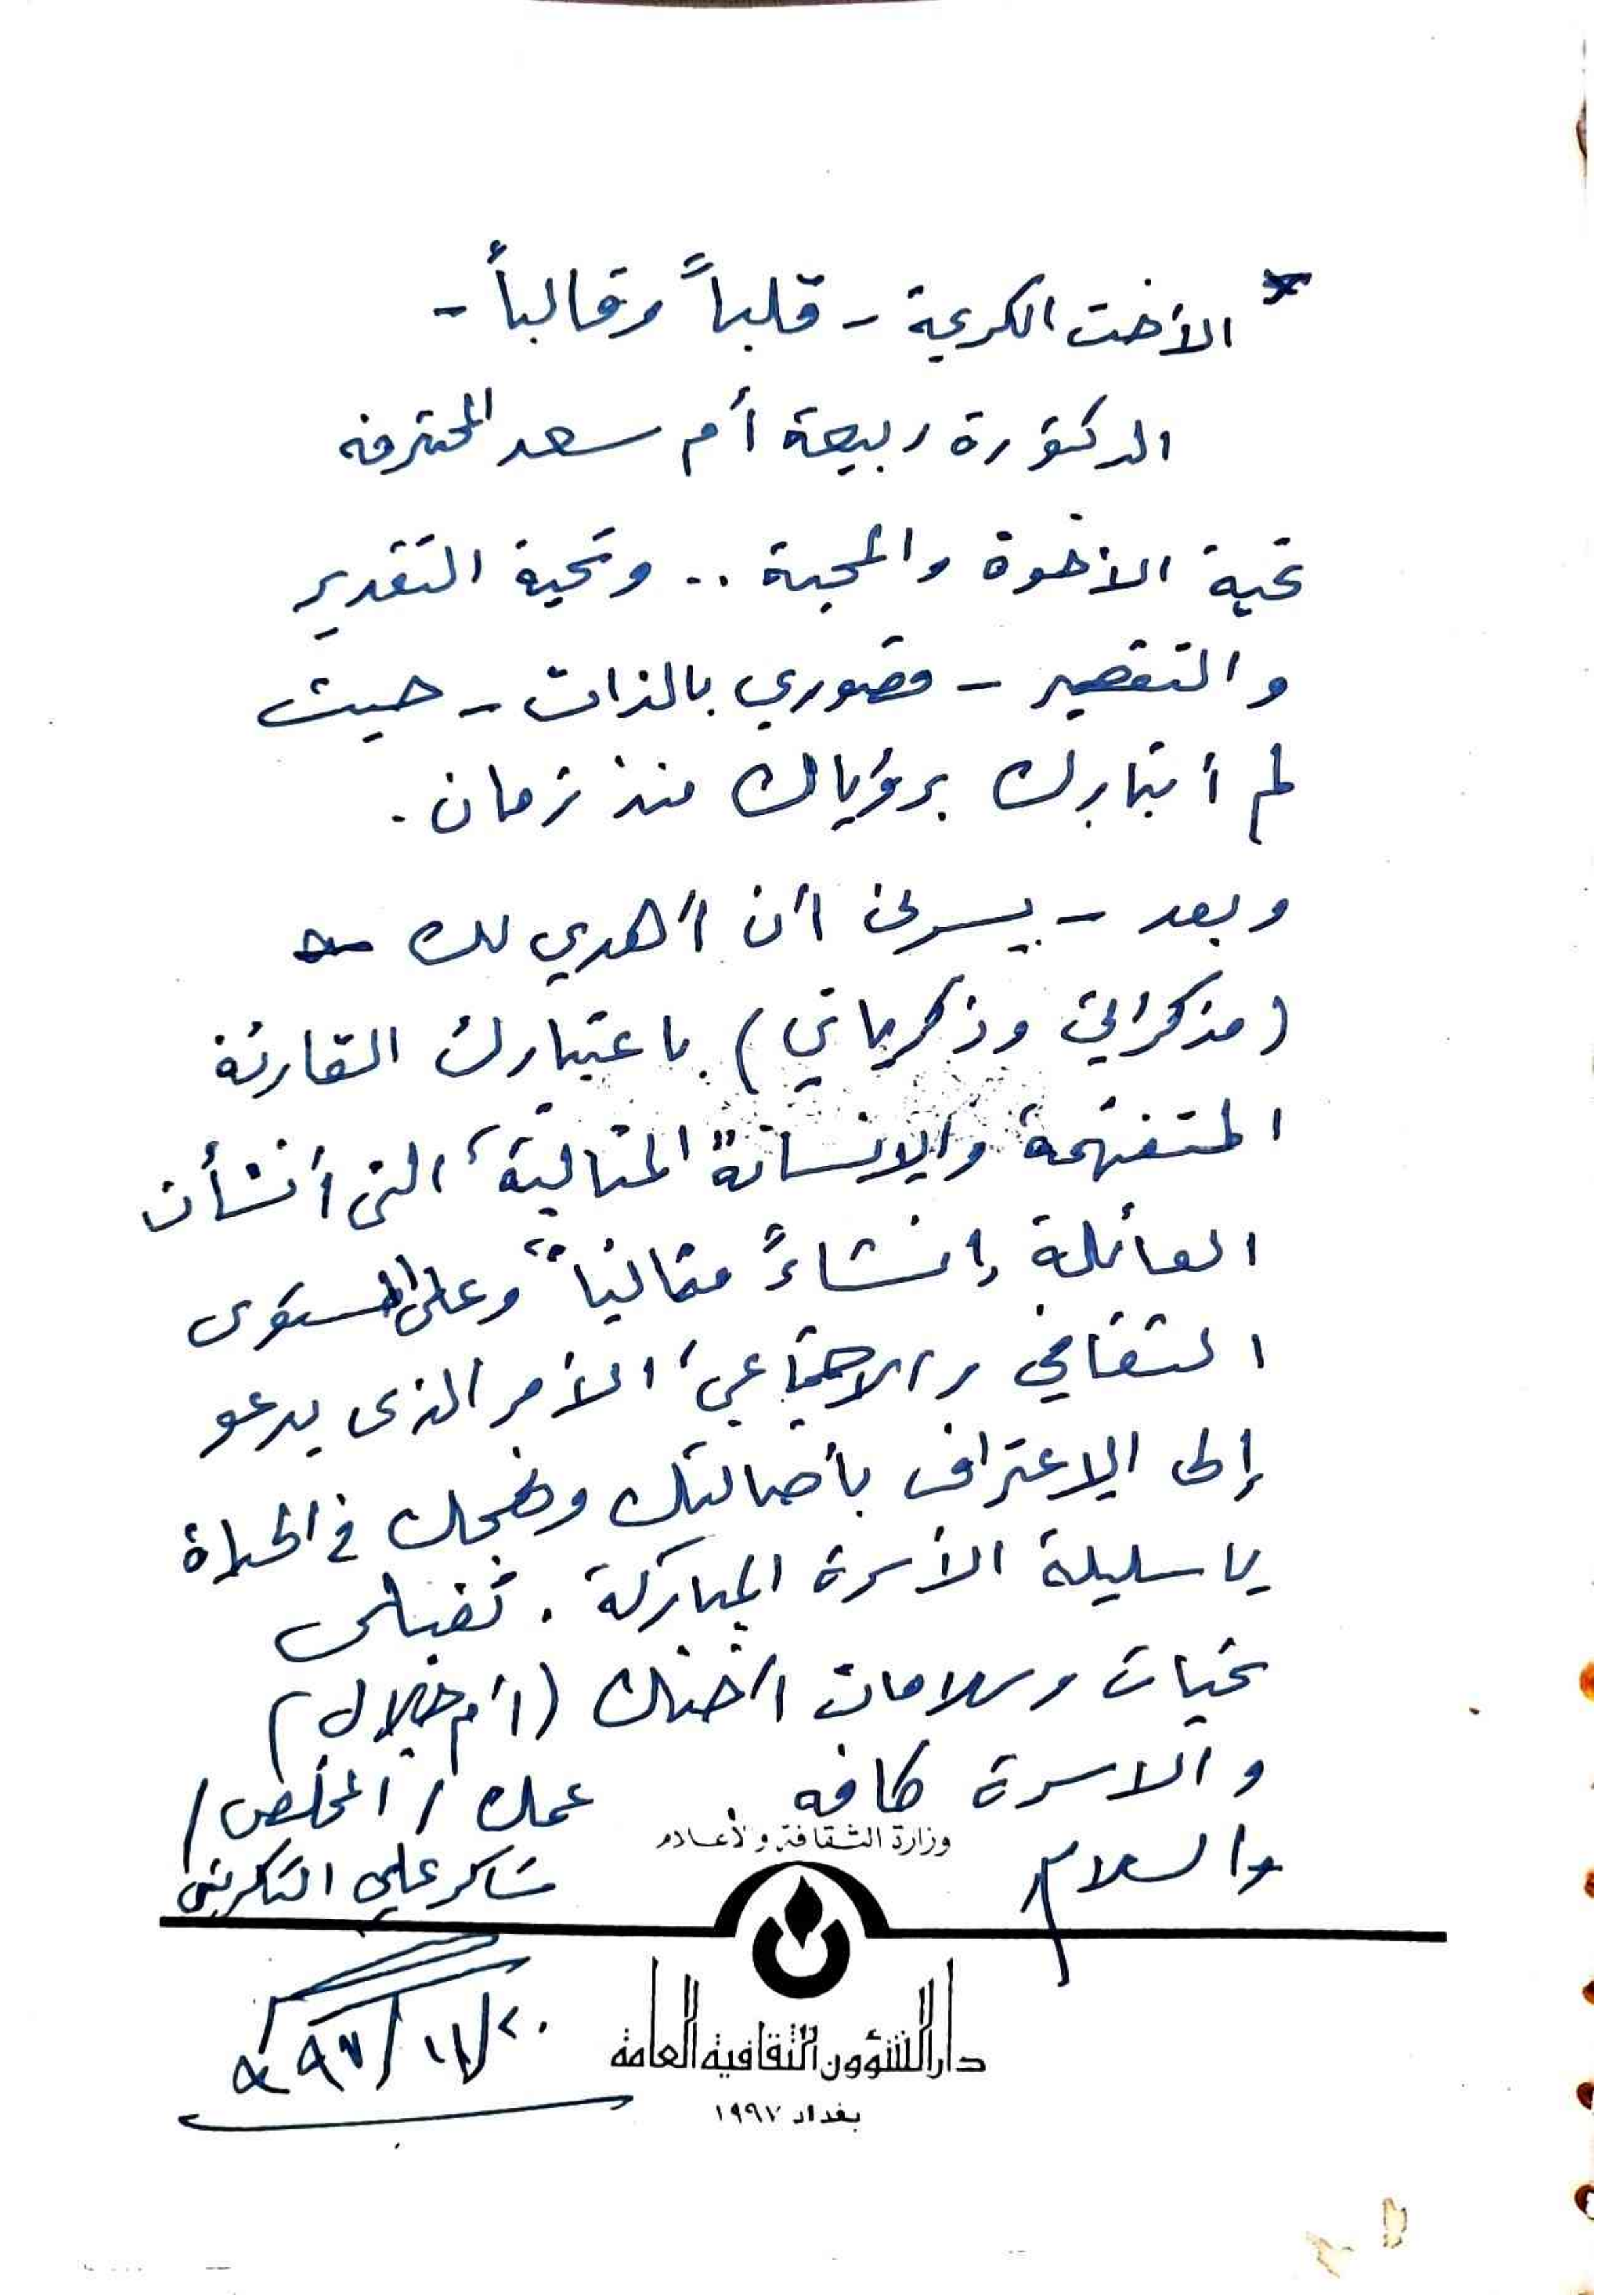 * الأخت الكريمة - قلباً وقالباً -
الدكتورة ربيعة أم سعد المحترمه
تحية الأخوة والمحبة .. وتحية التقدير
والتقصير - قصوري بالذات - حيث
لم أتبارك برؤياك منذ زمان .
وبعد - يسرني أن أهدي لك
(مذكراتي وذكرياتي) باعتبارك القارئة
المتفهمة والإنسانة المثالية، التي أنشأت
العائلة إنشاءً مثالياً وعلى المستوى
الثقافي والاجتماعي، الأمر الذي يدعو
إلى الإعتراف بأصالتك ونضجك في الحياة
يا سليلة الأسرة المباركة . تقبلي
تحيات وسلامات أختك (أم جلال)
والاسرة كافه .
عمك / المخلص /
والسلام
شاكر علي التكريتي
وزارة الثقافة والاعلام
٢٠/١١/٩٧
دار الشؤون الثقافية العامة
بغداد ١٩٩٧